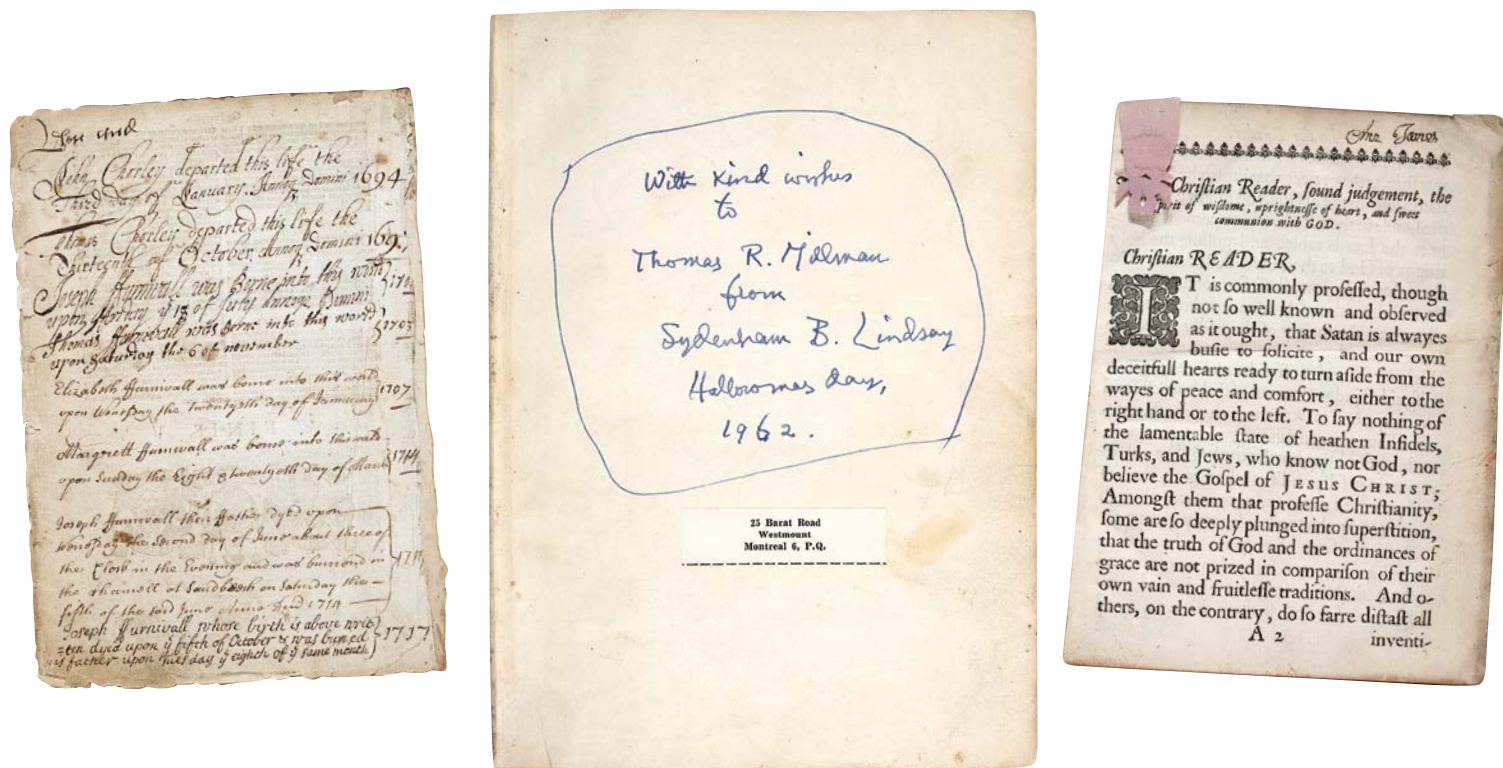 John Chorley departed this life the
Third day of January Annoq Domini 1694
Chorley departed this life the
Thirteenth of October Annoq Domini
Joseph ffurnivall was Borne into this world
upon ye 13 of July Annoqe Domini
Thomas ffurnivall was borne into this world
upon Saturday the 6 of november 1703
Elizabeth ffurnivall was borne into this world
upon Wensday the twentyeth day of January 1707
Margrett ffurnivall was borne into this world
upon Sunday the Eight & twentyeth day of March 1714
Joseph ffurnivall their ffather dyed upon
Wensday the Second day of June about three of
the Clock in the Evening and was burried in
the Chancell at Sandbach on Saturday the
fifth of the said June Anno Dmd 1714
Joseph ffurnivall whose birth is above writ
=ten dyed upon ye fifth of October & was buried
his father upon Tuesday ye eighth of ye same month 1737
With kind wishes
to
Thomas R. Millman
from
Sydenham B. Lindsay
Hallowmas day,
1962.
25 Barat Road
Westmount
Montreal 6, P.Q.
Christian Reader, ſound judgement, the
ſpirit of wiſdome, uprightneſſe of heart, and ſweet
communion with GOD.
Chriſtian READER,
IT is commonly profeſſed, though
not ſo well known and obſerved
as it ought, that Satan is alwayes
buſie to ſolicite, and our own
deceitfull hearts ready to turn aſide from the
wayes of peace and comfort, either to the
right hand or to the left. To ſay nothing of
the lamentable ſtate of heathen Infidels,
Turks, and Jews, who know not God, nor
believe the Goſpel of JESUS CHRIST;
Amongſt them that profeſſe Chriſtianity,
ſome are ſo deeply plunged into ſuperſtition,
that the truth of God and the ordinances of
grace are not prized in compariſon of their
own vain and fruitleſſe traditions. And o-
thers, on the contrary, do ſo farre diſtaſt all
A 2 inventi-